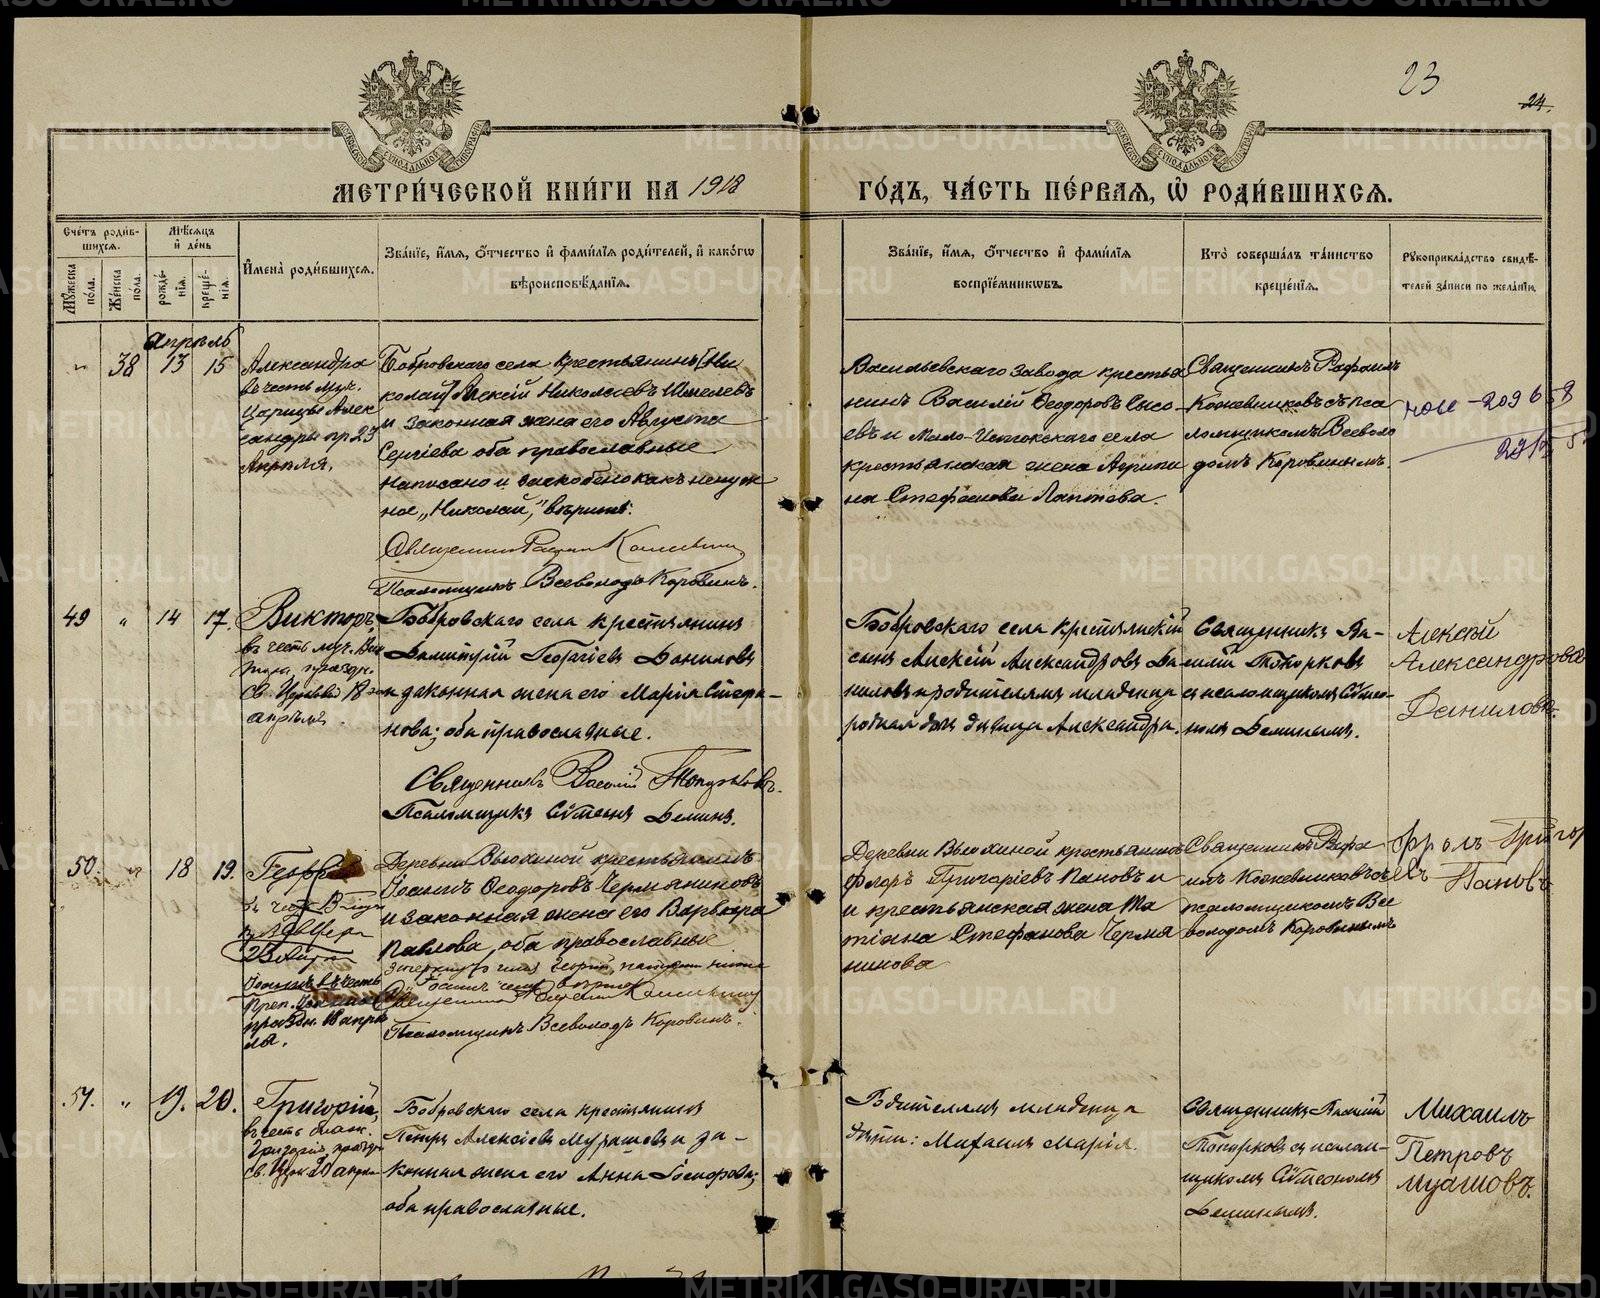 23
24.
МЕТРИ́ЧЕСКОЙ КНИ́ГИ НА 1918
ГО́ДЪ, ЧА́СТЬ ПЕ́РВАЯ, Ѡ РОДИ́ВШИХСЯ.
Сче́тъ роди́в-
шихся.
Му́жеска по́ла.
Же́нска по́ла.
Мѣ́сяцъ и де́нь
рожде́-
нїя.
креще́-
нїя.
Имена̀ роди́вшихся.
Зва́нїе, и́мя, о́тчество и фами́лїя роди́телей, и како́гѡ
вѣроисповѣ́данїя.
Зва́нїе, и́мя, о́тчество и фами́лїя
воспрїе́мникѡвъ.
Кто̀ соверша́лъ та́инство
креще́нїя.
Рукоприкла́дство свидѣ́-
телей за́писи по жела́нїю.
апрѣль
" 38 13 15
Александра
въ честь муч.
Царицы Алек
сандры пр 23
Апрѣля.
Бобровскаго села крестьянинъ (Ни
колай) Алексій Николаевъ Шмелевъ
и законная жена его Августа
Сергіева оба православные
Написано и заскоблено какъ ненуж
ное „Николай," вѣрить:
Псаломщикъ Всеволодъ Коровинъ.
Васильевскаго завода крестья
нинъ Василій Ѳеодоровъ Сысо
евъ и Мало-Истокскаго села
крестьянская жена Агрипи
на Стефанова Лаптева.
Священникъ Рафаилъ
Кожевниковъ съ пса
ломщикомъ Всеволо
домъ Коровинымъ.
49 " 14 17.
Викторъ,
въ честь муч. Вик
тора, праздн.
Св. Церковью 18го
апрѣля.
Бобровскаго села крестьянинъ
Димитрій Георгіевъ Даниловъ
и законная жена его Марія Стефа-
нова; оба православные.
Священникъ Василій Топорковъ.
Псаломщикъ Сѵмеонъ Деминъ.
Бобровскаго села крестьянскій
сынъ Алексій Александровъ Да
ниловъ и родителями младенца
родная дочь дѣвица Александра.
Священникъ Ва-
силій Топорковъ
съ псаломщикомъ Сѵмео-
номъ Деминымъ.
Алексѣй
Александровъ
Даниловъ.
50. " 18 19.
Іоаннъ въ честь
Преп. Іоанна
праздн. 18 апрѣ
ля.
Деревни Вьюхиной крестьянинъ
Іоаннъ Ѳеодоровъ Чермяниновъ
и законная жена его Варвара
Павлова, оба православные
Псаломщикъ Всеволодъ Коровинъ.
Деревни Вьюхиной крестьянинъ
Флоръ Григоріевъ Пановъ и
и крестьянская жена Та
тіана Стефанова Чермя
нинова
Священникъ Рафа
илъ Кожевниковъ съ
псаломщикомъ Все
володомъ Коровинымъ
Фролъ Григор
евъ Пановъ
51. " 19. 20.
Григорій,
въ честь
Григорія, праздн.
Св. Церк 20 апрѣля
Бобровскаго села крестьянинъ
Петръ Алексіевъ Мурашовъ и за-
конная жена его Анна Іосифова;
оба православные.
Родителями младенца
дѣти: Михаилъ Марія.
Священникъ Василій
Топорковъ съ псалом-
щикомъ Сѵмеономъ
Деминымъ.
Михаилъ
Петровъ
Мурашовъ.
METRIKI.GASO-URAL.RU